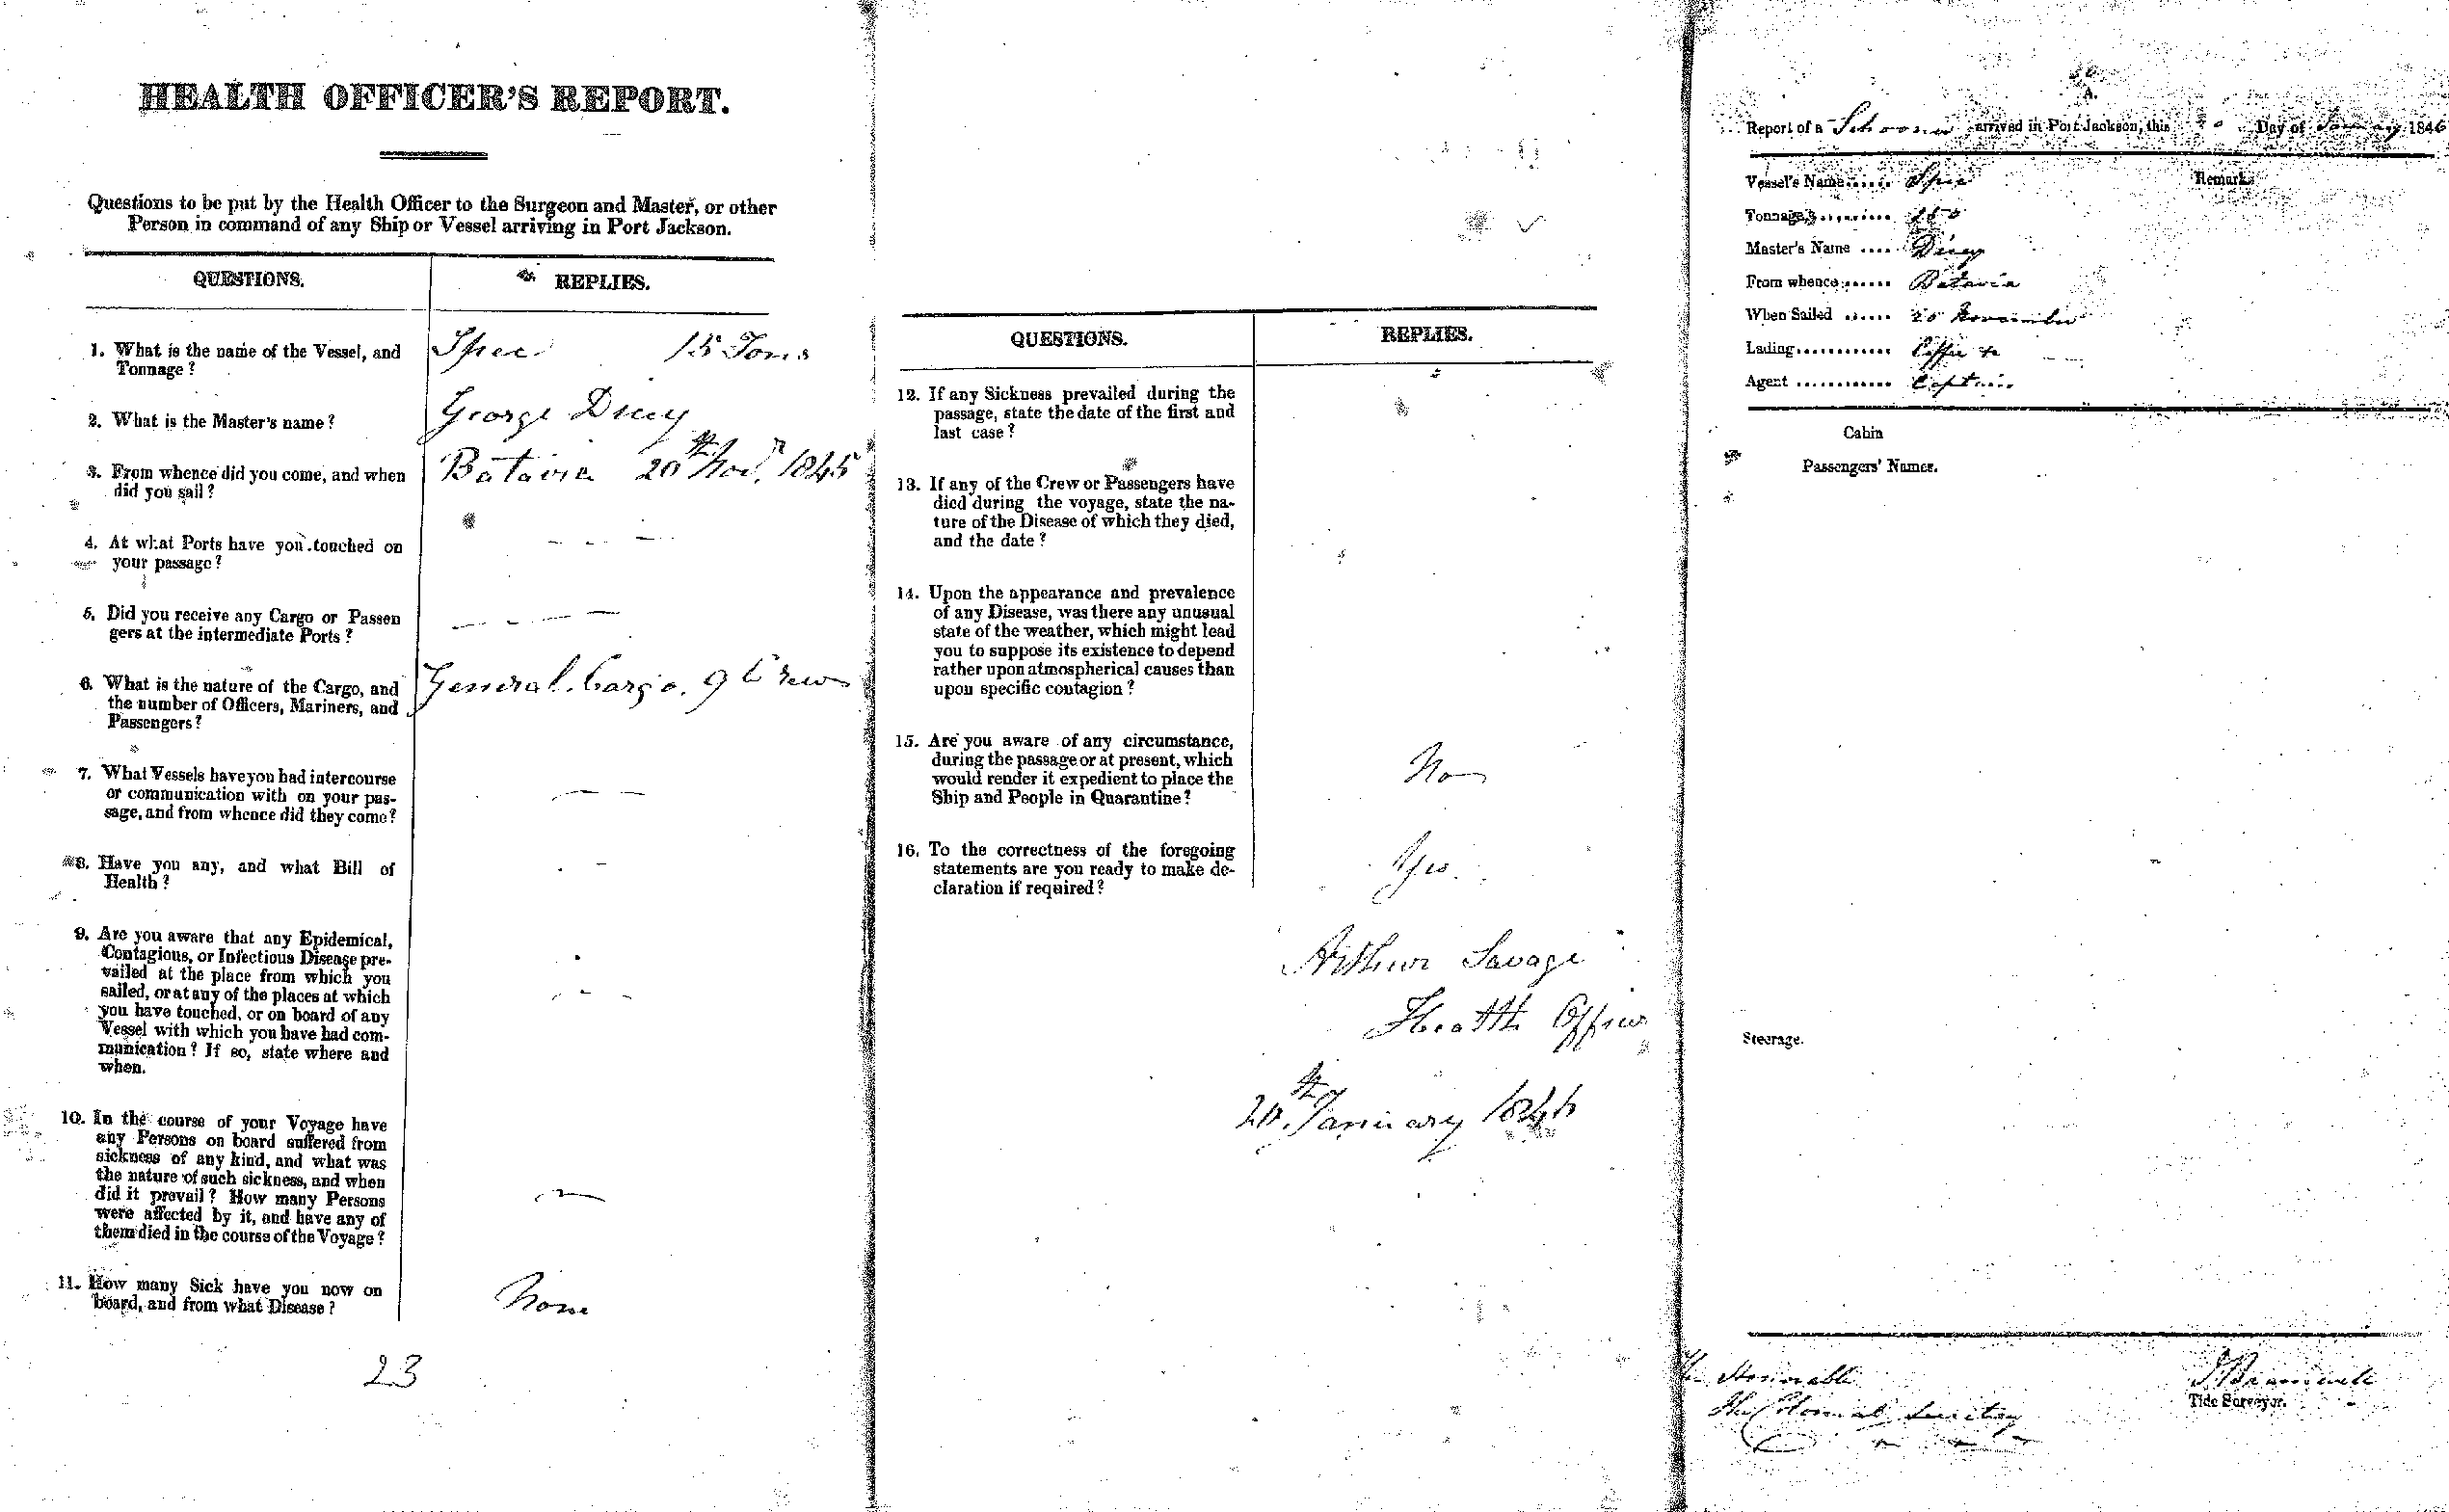 HEALTH OFFICER'S REPORT.
Questions to be put by the Health Officer to the Surgeon and Master, or other
Person in command of any Ship or Vessel arriving in Port Jackson.
QUESTIONS.
REPLIES.
1. What is the name of the Vessel, and
Tonnage?
Spec 15 Tons
2. What is the Master's name?
George
3. From whence did you come, and when
did you sail?
Batavia 20th Novr. 1845
4. At what Ports have you touched on
your passage?
5. Did you receive any Cargo or Passen
gers at the intermediate Ports?
6. What is the nature of the Cargo, and
the number of Officers, Mariners, and
Passengers?
General Cargo. 9 Crew
7. What Vessels have you had intercourse
or communication with on your pas-
sage, and from whence did they come?
8. Have you any, and what Bill of
Health?
9. Are you aware that any Epidemical,
Contagious, or Infectious Disease pre-
vailed at the place from which you
sailed, or at any of the places at which
you have touched, or on board of any
Vessel with which you have had com-
munication? If so, state where and
when.
10. In the course of your Voyage have
any Persons on board suffered from
sickness of any kind, and what was
the nature of such sickness, and when
did it prevail? How many Persons
were affected by it, and have any of
them died in the course of the Voyage?
11. How many Sick have you now on
board, and from what Disease?
None
23
QUESTIONS.
REPLIES.
12. If any Sickness prevailed during the
passage, state the date of the first and
last case?
13. If any of the Crew or Passengers have
died during the voyage, state the na-
ture of the Disease of which they died,
and the date?
14. Upon the appearance and prevalence
of any Disease, was there any unusual
state of the weather, which might lead
you to suppose its existence to depend
rather upon atmospherical causes than
upon specific contagion?
15. Are you aware of any circumstance,
during the passage or at present, which
would render it expedient to place the
Ship and People in Quarantine?
No
16. To the correctness of the foregoing
statements are you ready to make de-
claration if required?
Yes.
Arthur Savage
Health Officer
20th January 1846
A.
Report of a Schooner arrived in Port Jackson, this 20 Day of January 1846
Vessel's Name...... Spec
Remarks
Tonnage,...........
Master's Name .....
From whence...... Batavia
When Sailed ...... 20 November
Lading............ Coffee &c
Agent ............ Captain
Cabin
Passengers' Names.
Steerage.
The Honorable
The Colonial Secretary
J Bramwell
Tide Surveyor.